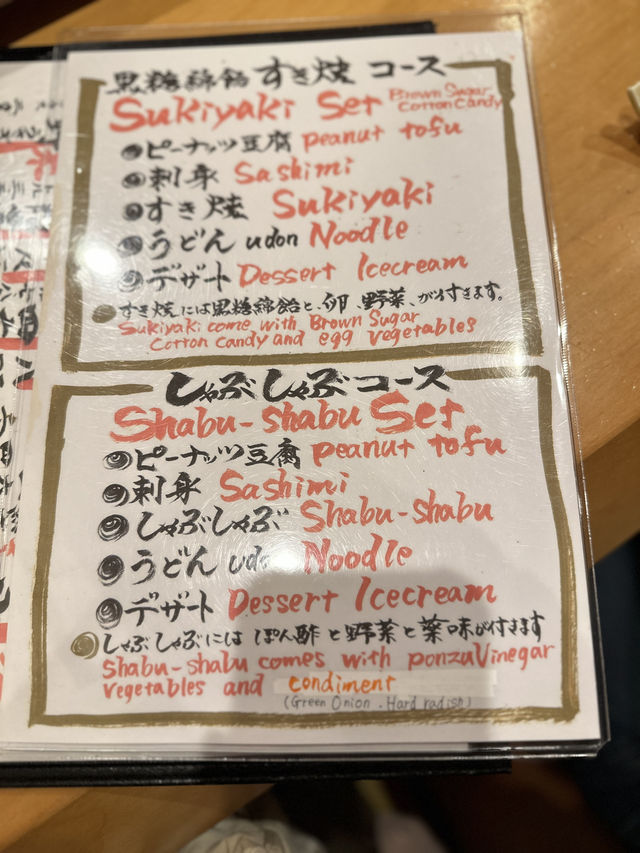 黒糖綿飴すき焼 コース
Sukiyaki Set Brown Sugar
Cotton Candy
ピーナッツ豆腐 peanut tofu
刺身 Sashimi
すき焼 Sukiyaki
うどん udon Noodle
デザート Dessert Icecream
すき焼には黒糖綿飴と、卵 野菜、が付きます。
Sukiyaki come with Brown Sugar
Cotton candy and egg vegetables
しゃぶしゃぶコース
Shabu-shabu Set
ピーナッツ豆腐 peanut tofu
刺身 Sashimi
しゃぶしゃぶ Shabu-shabu
うどん udon Noodle
デザート Dessert Icecream
しゃぶしゃぶには ぽん酢と野菜と薬味が付きます
Shabu-shabu comes with ponzu Vinegar
vegetables and condiment
(Green Onion . Hard radish)